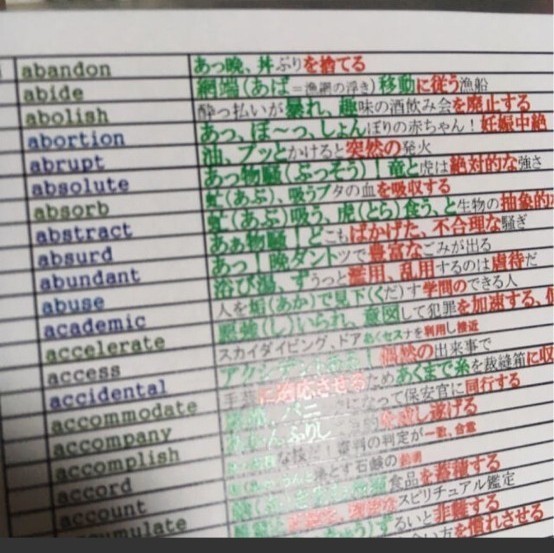 abandon あっ晩、丼ぶりを捨てる
abide 網端(あば=漁網の浮き)移動に従う漁船
abolish 酔っ払いが暴れ、趣味の酒飲み会を廃止する
abortion あっ、ぼ~っ、しょんぼりの赤ちゃん!妊娠中絶
abrupt 油、プッとかけると突然の発火
absolute あっ物騒(ぶっそう)!竜と虎は絶対的な強さ
absorb 虻(あぶ)、吸うブタの血を吸収する
abstract 虻(あぶ)吸う、虎(とら)食う、と生物の抽象的
absurd あぁ物騒!どこもばかげた、不合理な騒ぎ
abundant あっ!晩ダントツで豊富なごみが出る
abuse 浴び湯、ずうっと濫用、乱用するのは虐待だ
academic 人を垢(あか)で見下(くだ)す学問のできる人
accelerate 意図して犯罪を加速する、
access スカイダイビング、ドアあくセスナを利用し接近
accidental 偶然の出来事で
accommodate に対応させるためあくまで糸を裁縫箱に収
accompany なって保安官に同行する
accomplish し遂げる
accord な技だ!資料の判定が一致、合意
account 落とす石鹸の説明
umulate 食品を蓄積する
スピリチュアル鑑定
るいと非難する
い方を慣れさせる